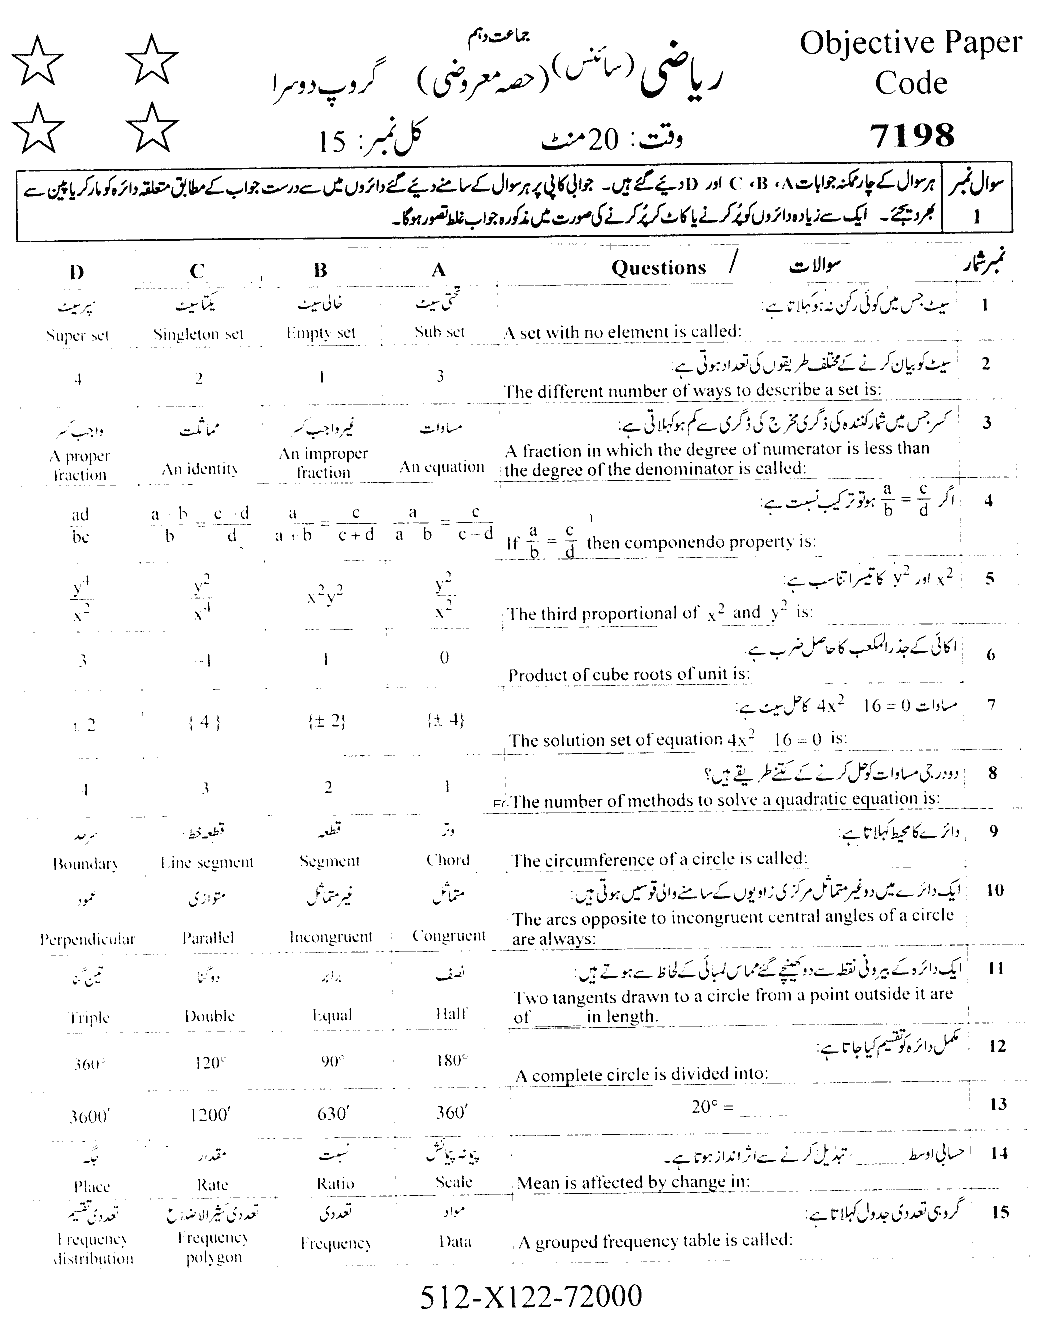 جماعت دہم
Objective Paper
Code
7198
ریاضی (سائنس) (حصہ معروضی) گروپ دوسرا
وقت: 20 منٹ کل نمبر: 15
سوال نمبر 1
ہر سوال کے چار ممکنہ جوابات A، B، C اور D دیئے گئے ہیں۔ جوابی کاپی پر ہر سوال کے سامنے دیئے گئے دائروں میں سے درست جواب کے مطابق متعلقہ دائرہ کو مارکر یا پین سے
بھر دیجئے۔ ایک سے زیادہ دائروں کو پُر کرنے یا کاٹ کر پُر کرنے کی صورت میں مذکورہ جواب غلط تصور ہوگا۔
D C B A Questions / سوالات نمبر شمار
سپر سیٹ یکتا سیٹ خالی سیٹ تحتی سیٹ سیٹ جس میں کوئی رکن نہ ہو کہلاتا ہے: 1
Super set Singleton set Empty set Sub set A set with no element is called:
سیٹ کو بیان کرنے کے مختلف طریقوں کی تعداد ہوتی ہے: 2
4 2 1 3 The different number of ways to describe a set is:
واجب کسر مماثلت غیر واجب کسر مساوات کسر جس میں شمار کنندہ کی ڈگری مخرج کی ڈگری سے کم ہو کہلاتی ہے: 3
A proper fraction An identity An improper fraction An equation A fraction in which the degree of numerator is less than
the degree of the denominator is called:
اگر a/b = c/d ہو تو ترکیب نسبت ہے: 4
ad/bc a b/b = c d/d a/a+b = c/c+d a/a b = c/c-d If a/b = c/d then componendo property is:
x² اور y² کا تیسرا تناسب ہے: 5
y⁴/x² y²/x⁴ x²y² y²/x² The third proportional of x² and y² is:
اکائی کے جذر المکعب کا حاصل ضرب ہے: 6
3 -1 1 0 Product of cube roots of unit is:
مساوات 4x² 16 = 0 کا حل سیٹ ہے: 7
± 2 {4} {± 2} {± 4} The solution set of equation 4x² 16 = 0 is:
دو درجی مساوات کو حل کرنے کے کتنے طریقے ہیں؟ 8
4 3 2 1 The number of methods to solve a quadratic equation is:
سرحد قطعہ خط قطعہ وتر دائرے کا محیط کہلاتا ہے: 9
Boundary Line segment Segment Chord The circumference of a circle is called:
عمود متوازی غیر متماثل متماثل ایک دائرے میں دو غیر متماثل مرکزی زاویوں کے سامنے والی قوسیں ہوتی ہیں: 10
Perpendicular Parallel Incongruent Congruent The arcs opposite to incongruent central angles of a circle
are always:
تین گنا دو گنا برابر نصف ایک دائرہ کے بیرونی نقطہ سے دو کھینچے گئے مماس لمبائی کے لحاظ سے ہوتے ہیں: 11
Triple Double Equal Half Two tangents drawn to a circle from a point outside it are
of _____ in length.
مکمل دائرہ کو تقسیم کیا جاتا ہے: 12
360° 120° 90° 180° A complete circle is divided into:
3600′ 1200′ 630′ 360′ 20° = _____ 13
جگہ مقدار نسبت پیمانہ پیمائش حسابی اوسط _____ تبدیل کرنے سے اثر انداز ہوتا ہے۔ 14
Place Rate Ratio Scale Mean is affected by change in:
تعددی تقسیم تعددی کثیرالاضلاع تعددی مواد گروہی تعددی جدول کہلاتا ہے: 15
Frequency distribution Frequency polygon Frequency Data A grouped frequency table is called:
512-X122-72000